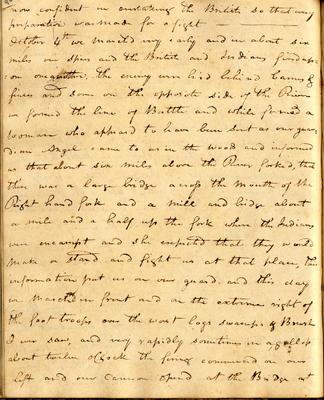 now confident in overtaking the British so that every
preparation was made for a fight
October 4th we march'd very early and in about six
miles our spies and the British and Indians fired
on The enemy were hid behind Barns &
fences and some on the opposite side of the River
we formed the line of Battle and while formed a
Woman who appeared to have been sent as our guar
dian Angel came to us in the wood and informed
us that about six miles above the River forked, that
there was a large bridge across the mouth of the
Right hand fork and a mill and bridge about
a mile and a half up the fork where the Indians
were encampt and she expected that they would
make a stand and fight us at that place, this
information put us on our guard. and this day
we marched in front and on the extreme right of
the foot troops over the worst logs swamps & Brush
I ever saw, and very rapidly sometimes in a gallop
about twelve oClock the firing commenced on our
left and our Cannon opend at the Bridge at